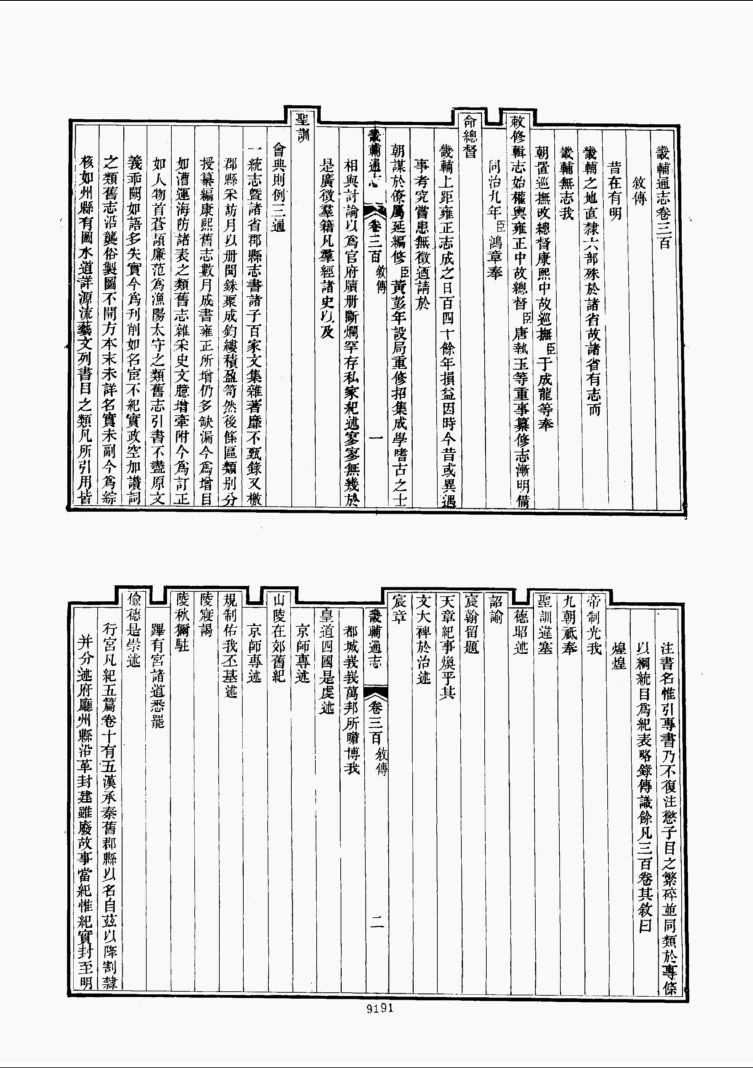 畿輔通志卷三百
敘傳
昔在有明
畿輔之地直隸六部殊於諸省故諸省有志而
畿輔無志我
朝置巡撫改總督康熙中故巡撫臣于成龍等奉
敕修輯志始權輿雍正中故總督臣唐執玉等重事纂修志漸明備
同治九年臣鴻章奉
命總督
畿輔上距雍正志成之日百四十餘年損益因時今昔或異遇
事考究嘗患無徵迺請於
朝謀於僚屬延編修臣黃彭年設局重修招集成學嗜古之士
畿輔通志 卷三百 敘傳 一
相與討論以為官府牘冊斷爛罕存私家紀述寥寥無幾於
是廣徵羣籍凡羣經諸史以及
聖訓
會典則例三通
一統志暨諸省郡縣志書諸子百家文集雜著靡不甄錄又檄
郡縣采訪月以冊聞銖絫成鈞縷積盈笥然後條區類別分
授纂編康熙舊志數月成書雍正所增仍多缺漏今為增目
如漕運海防諸表之類舊志雜采史文臆增牽附今為訂正
如人物首蒼頡廉范為漁陽太守之類舊志引書不盡原文
義乖闕如語多失實今為刊削如名宦不紀實政空加讚詞
之類舊志沿襲俗製圖不開方本末未詳名實未副今為綜
核如州縣有圖水道詳源流藝文列書目之類凡所引用皆
注書名惟引專書乃不復注愆子目之繁碎並同類於專條
以綱統目為紀表略錄傳識餘凡三百卷其敘曰
煌煌
帝制光我
九朝祇奉
聖訓違塞
德昭述
詔諭
宸翰留題
天章紀事煥乎其
文大裨於治述
宸章
畿輔通志 卷三百 敘傳 二
都城峩峩萬邦所瞻博我
皇道四國是虔述
京師專述
山陵在郊舊紀
京師專述
規制佑我丕基述
陵寢謁
陵秋獮駐
蹕有宮諸道悉罷
儉德是崇述
行宮凡紀五篇卷十有五漢承秦舊郡縣以名自茲以降割隸
并分述府廳州縣沿革封建雖廢故事當紀惟紀實封至明
9191